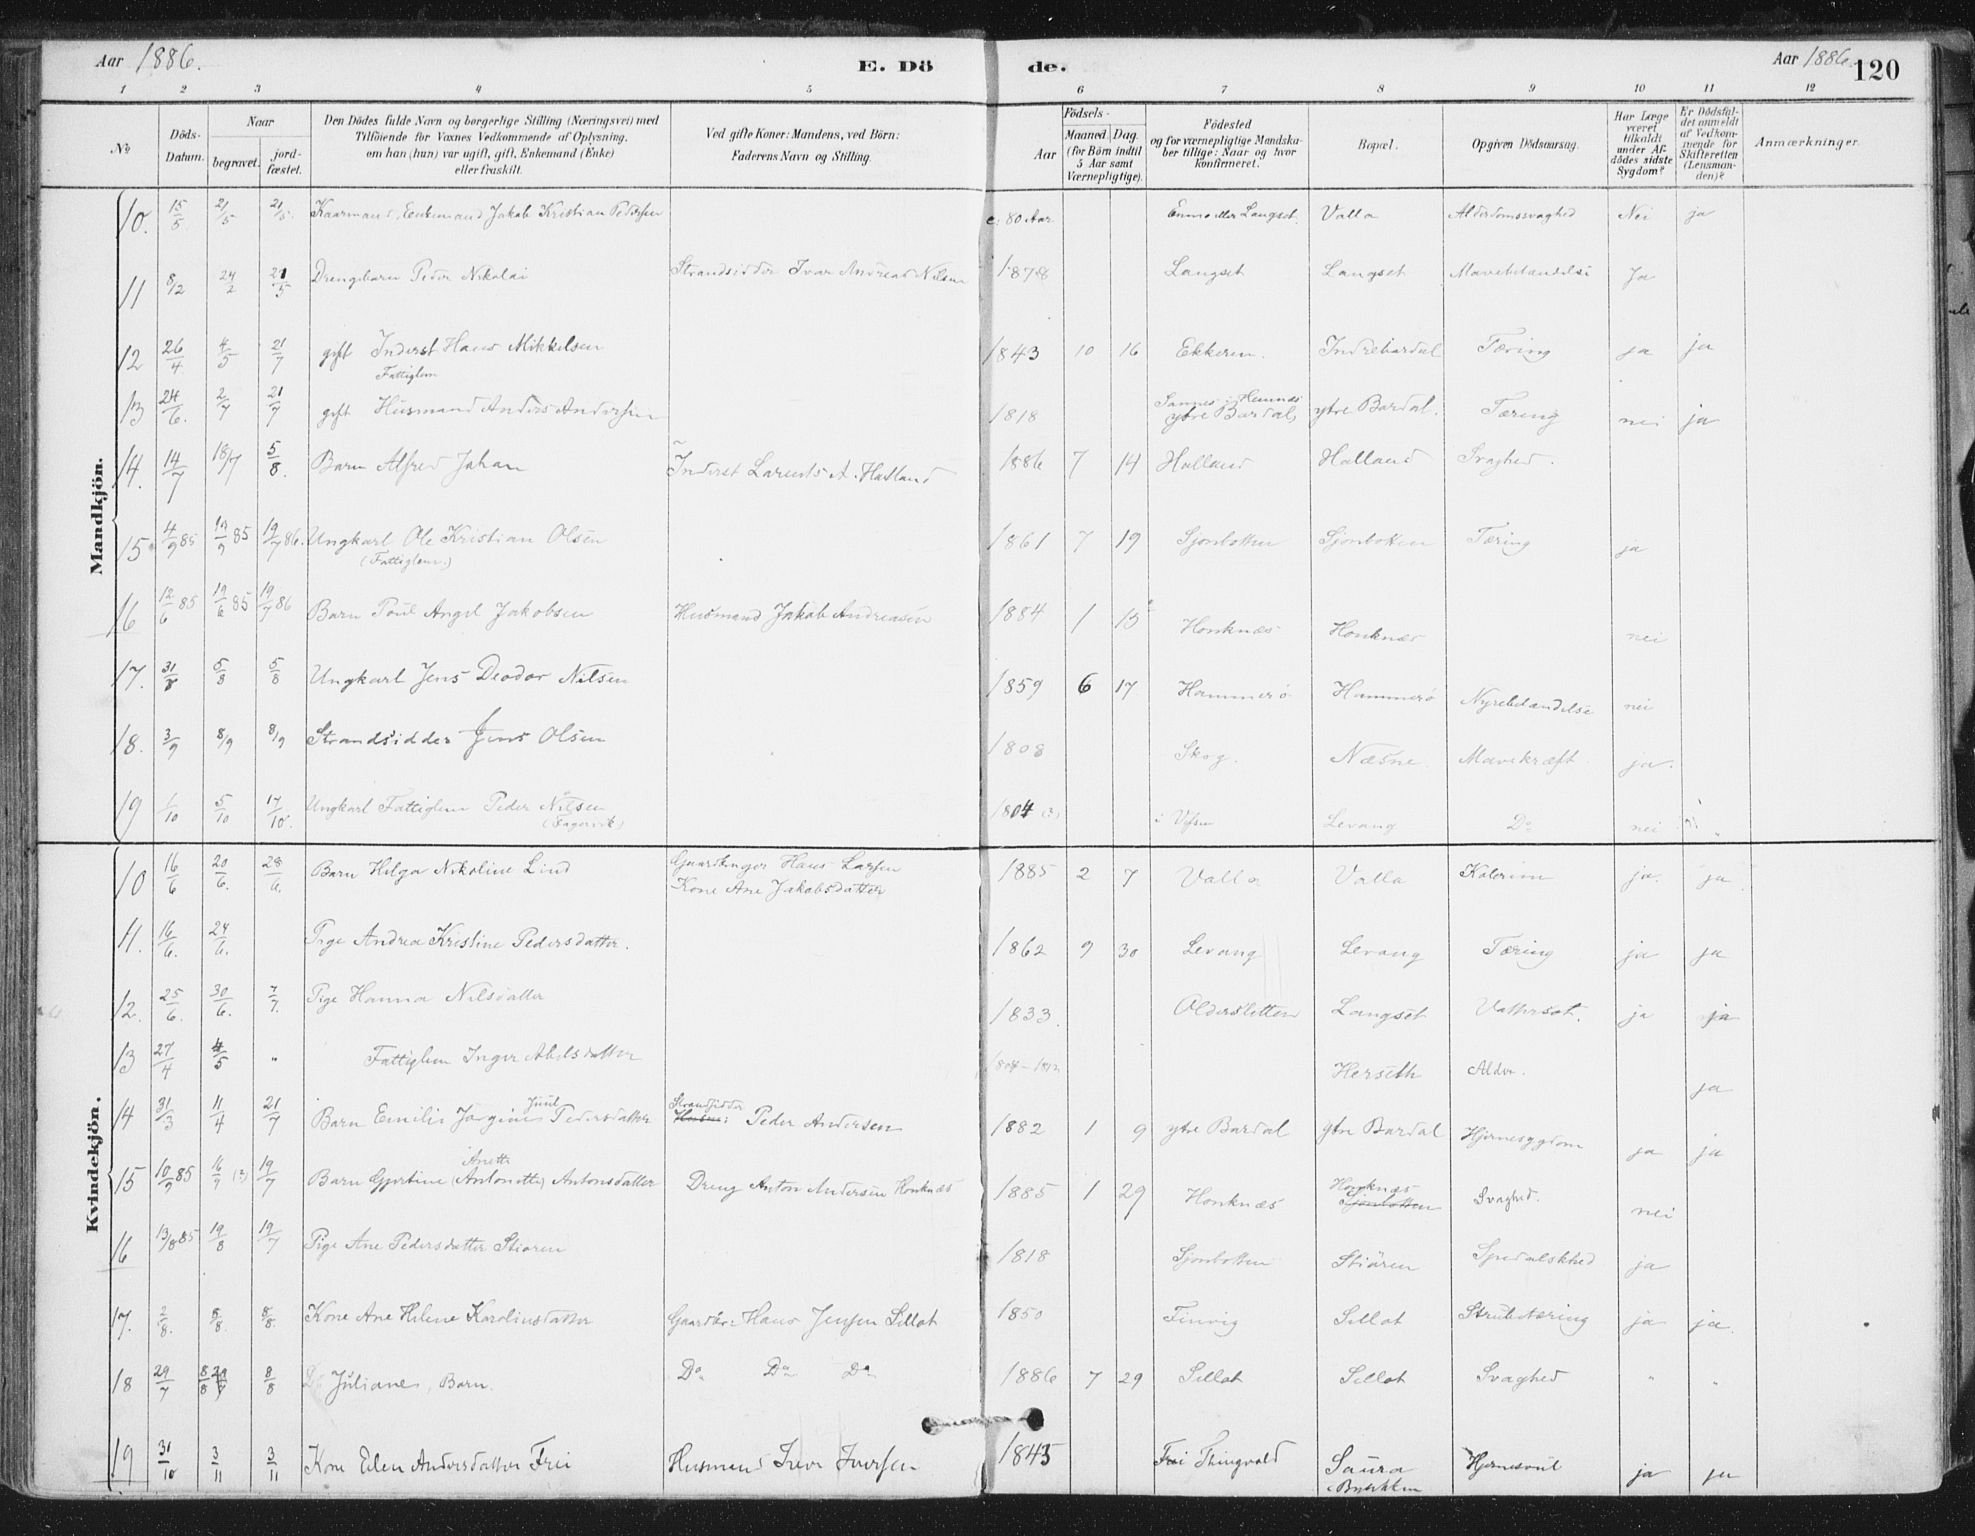 Aar 1886.
E. Dö
de.
Aar 1886.
120
1 2 3 4 5 6 7 8 9 10 11 12
No
Döds-Datum.
Naar
begravet.
jord-fæstet.
Den Dödes fulde Navn og borgerlige Stilling (Næringsvei) med
Tilföiende for Voxnes Vedkommende af Oplysning,
om han (hun) var ugift, gift, Enkemand (Enke)
eller fraskilt.
Ved gifte Koner: Mandens, ved Börn:
Faderens Navn og Stilling.
Födsels-
Aar
Maaned. Dag.
(for Börn indtil
5 Aar samt
Værnepligtige).
Födested
og for værnepligtige Mandska-
ber tillige: Naar og hvor
konfirmeret.
Bopæl.
Opgiven Dödsaarsag.
Har Læge
været
tilkaldt
under Af-
dödes sidste
Sygdom?
Er Dödsfal-
det anmeldt
af Vedkom-
mende for
Skifteretten
(Lensman-
den)?
Anmærkninger.
Mandkjön.
10. 15/5 21/5 21/5 Kaarmand, Enkemand Jakob Kristian Pedersen c. 80 Aar Enmo eller Langset. Valla Alderdomssvaghed Nei ja
11 8/2 24/2 21/5 Drengebarn Peder Nikolai Strandsidder Ivar Andreas Nilsen 1878 Langset Langset Mavebetændelse Ja
12 26/4 4/5 21/7 gift Inderst Hans Mikkelsen 1843 10 16 Ekkeren. Indrebardal Tæring ja ja
Fattiglem
13 24/6. 2/7 21/7 gift Husmand Anders Andersen 1818 Sannes i Hemnæs ytre Bardal, ytre Bardal. Tæring nei ja
14. 14/7 18/7 5/8. Barn Alfred Johan Inderst Larents A. Halland 1886 7 14 Halland Halland Svaghed.
15 4/9 85 14/9 85 19/7 86. Ungkarl Ole Kristian Olsen 1861 7 19 Sjonbotten Sjonbotten Tæring ja
(Fattiglem.)
16 12/6 85 19/6 85 19/7 86 Barn Poul Angel Jakobsen Husmand Jakob Andreasen 1884 1 13 Honknæs Honknæs nei
17. 5/8 5/8 Ungkarl Jens Deodor Nilsen 1859 6 17 Hammerö Hammerö Nyrebetændelse nei
18. 3/9 8/9 8/9 Strandsidder Jens Olsen 1808 Skog. Næsne. Mavekræft ja.
19 1/10 5/10 17/10. Ungkarl Fattiglem Peder Nilsen 1804 (3) i Vefsen Levang Do nei "
(Fagervik)
Kvindekjön.
10 16/6 20/6. 28/6. Barn Helga Nikoline Lind Gaardbruger Hans Larsen 1885 2 7 Valla Valla Kolerine ja. ja.
Kone Ane Jakobsdatter
11. 16/6. 24/6. Pige Andrea Kristine Pedersdatter. 1862 9 30 Levang Levang Tæring ja ja
12. 25/6. 30/6. 7/7. Pige Hanna Nilsdatter 1833. Oldersletten Langset Vattersot. ja ja
13 27/4 4/5 " Fattiglem Inger Abelsdatter Herseth Alder. ja
14 31/3 11/4 21/7 Barn Emilie Jørgine Juul Pedersdatter Strandsidder Peder Andersen 1882 1 9 ytre Bardal ytre Bardal Hjernesygdom ja ja
15 10/9 85 16/9 (?) 19/7 Barn Gjertine Anette (Antonette) Antonsdatter Dreng Anton Andersen Honknæs 1885 1 29 Honknæs Honknæs Sjonbotten Svaghed. nei
16 13/8 85 19/8 19/7 Pige Ane Pedersdatter Stioren 1818 Sjonbotten Stiören Spedalskhed ja
17. 2/8. 8/8. 8/8. Kone Ane Helene Karoliusdatter Gaardbr: Hans Jensen Sellot 1850 Finvig Sellot Strubetæring ja ja.
18 29/7 8/8 8/8 Do Juliane, Barn. Do Do Do 1886 7 29 Sellot Sellot Svaghed " "
19 31/10 3/11 3/11 Kone Elen Andersdatter Frei Husmand Iver Iversen 1845 Frei Thingvold Saura ja ja